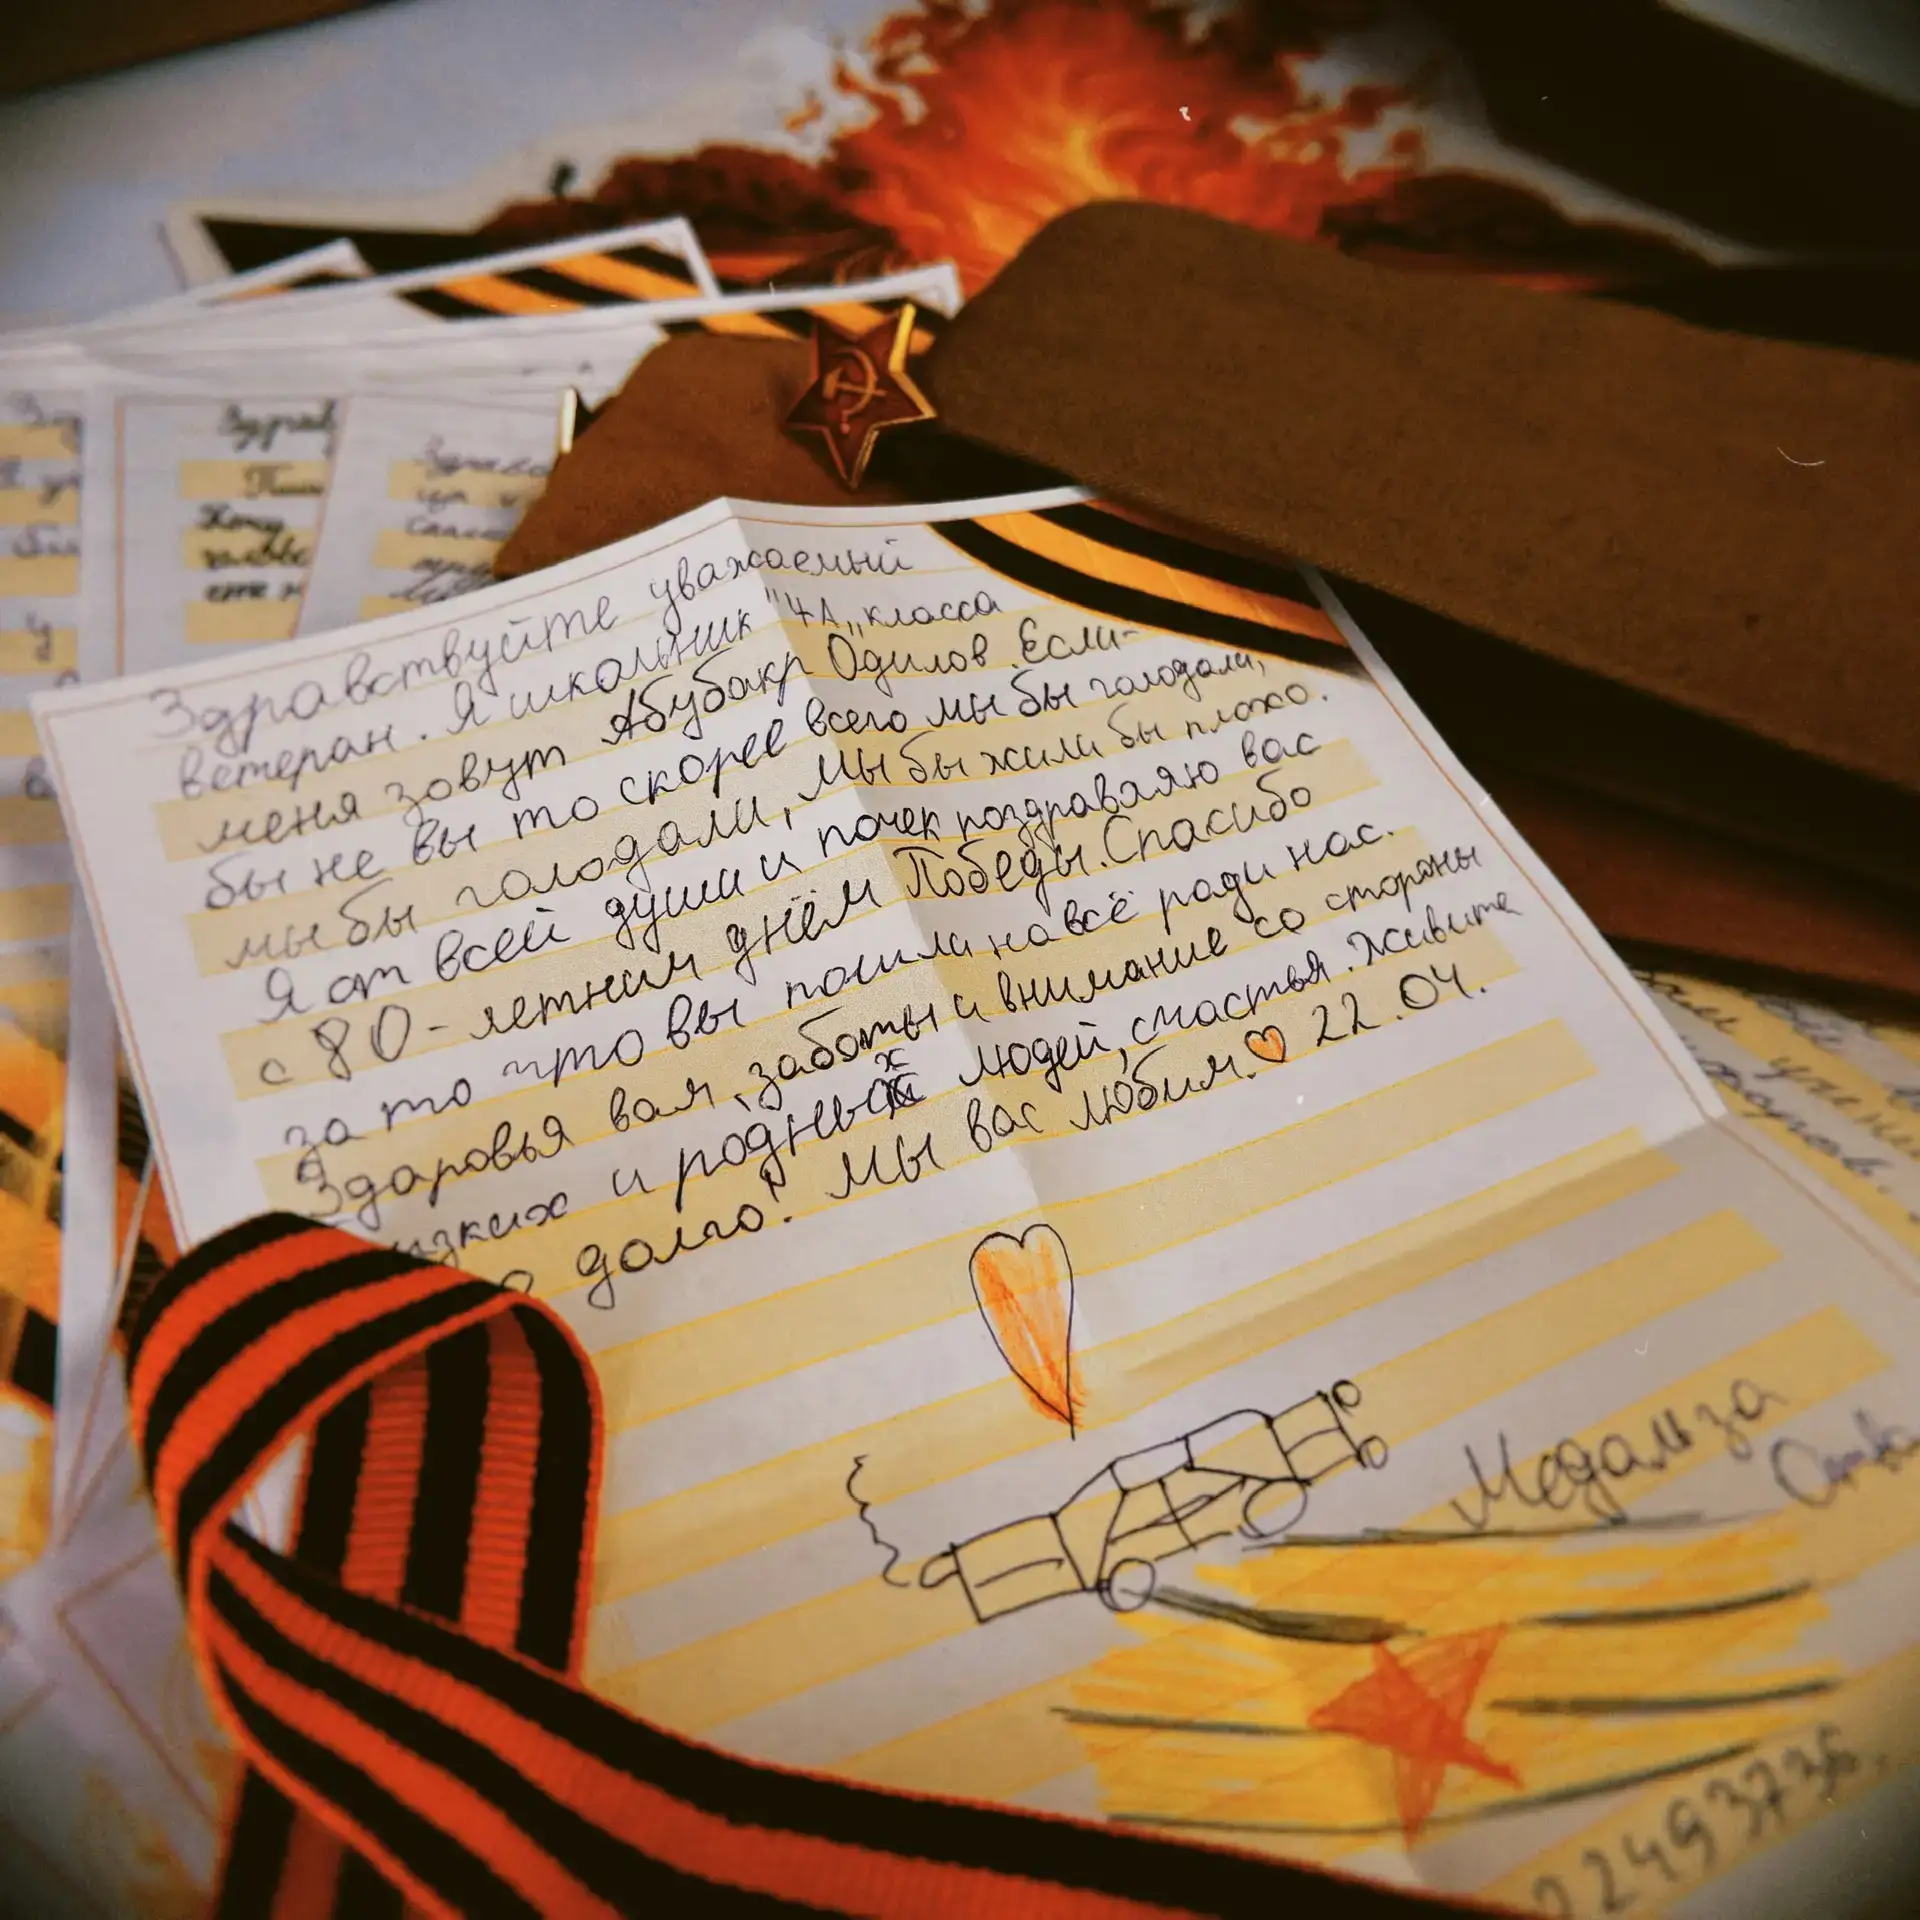 Здравствуйте уважаемый
ветеран. Я школьник "4А„ класса
меня зовут Абубакр Одилов. Если-
бы не вы то скорее всего мы бы голодали,
мы бы голодали, мы бы жили бы плохо.
Я от всей души и почек поздравляю вас
с 80-летним днём Победы. Спасибо
за то что вы пошли на всё ради нас.
Здоровья вам, заботы и внимание со стороны
изких и родных людей, счастья. Живите
о долго! Мы вас любим. 22.04.
Медаль за
Отва
2249373
Здрав
Хочу